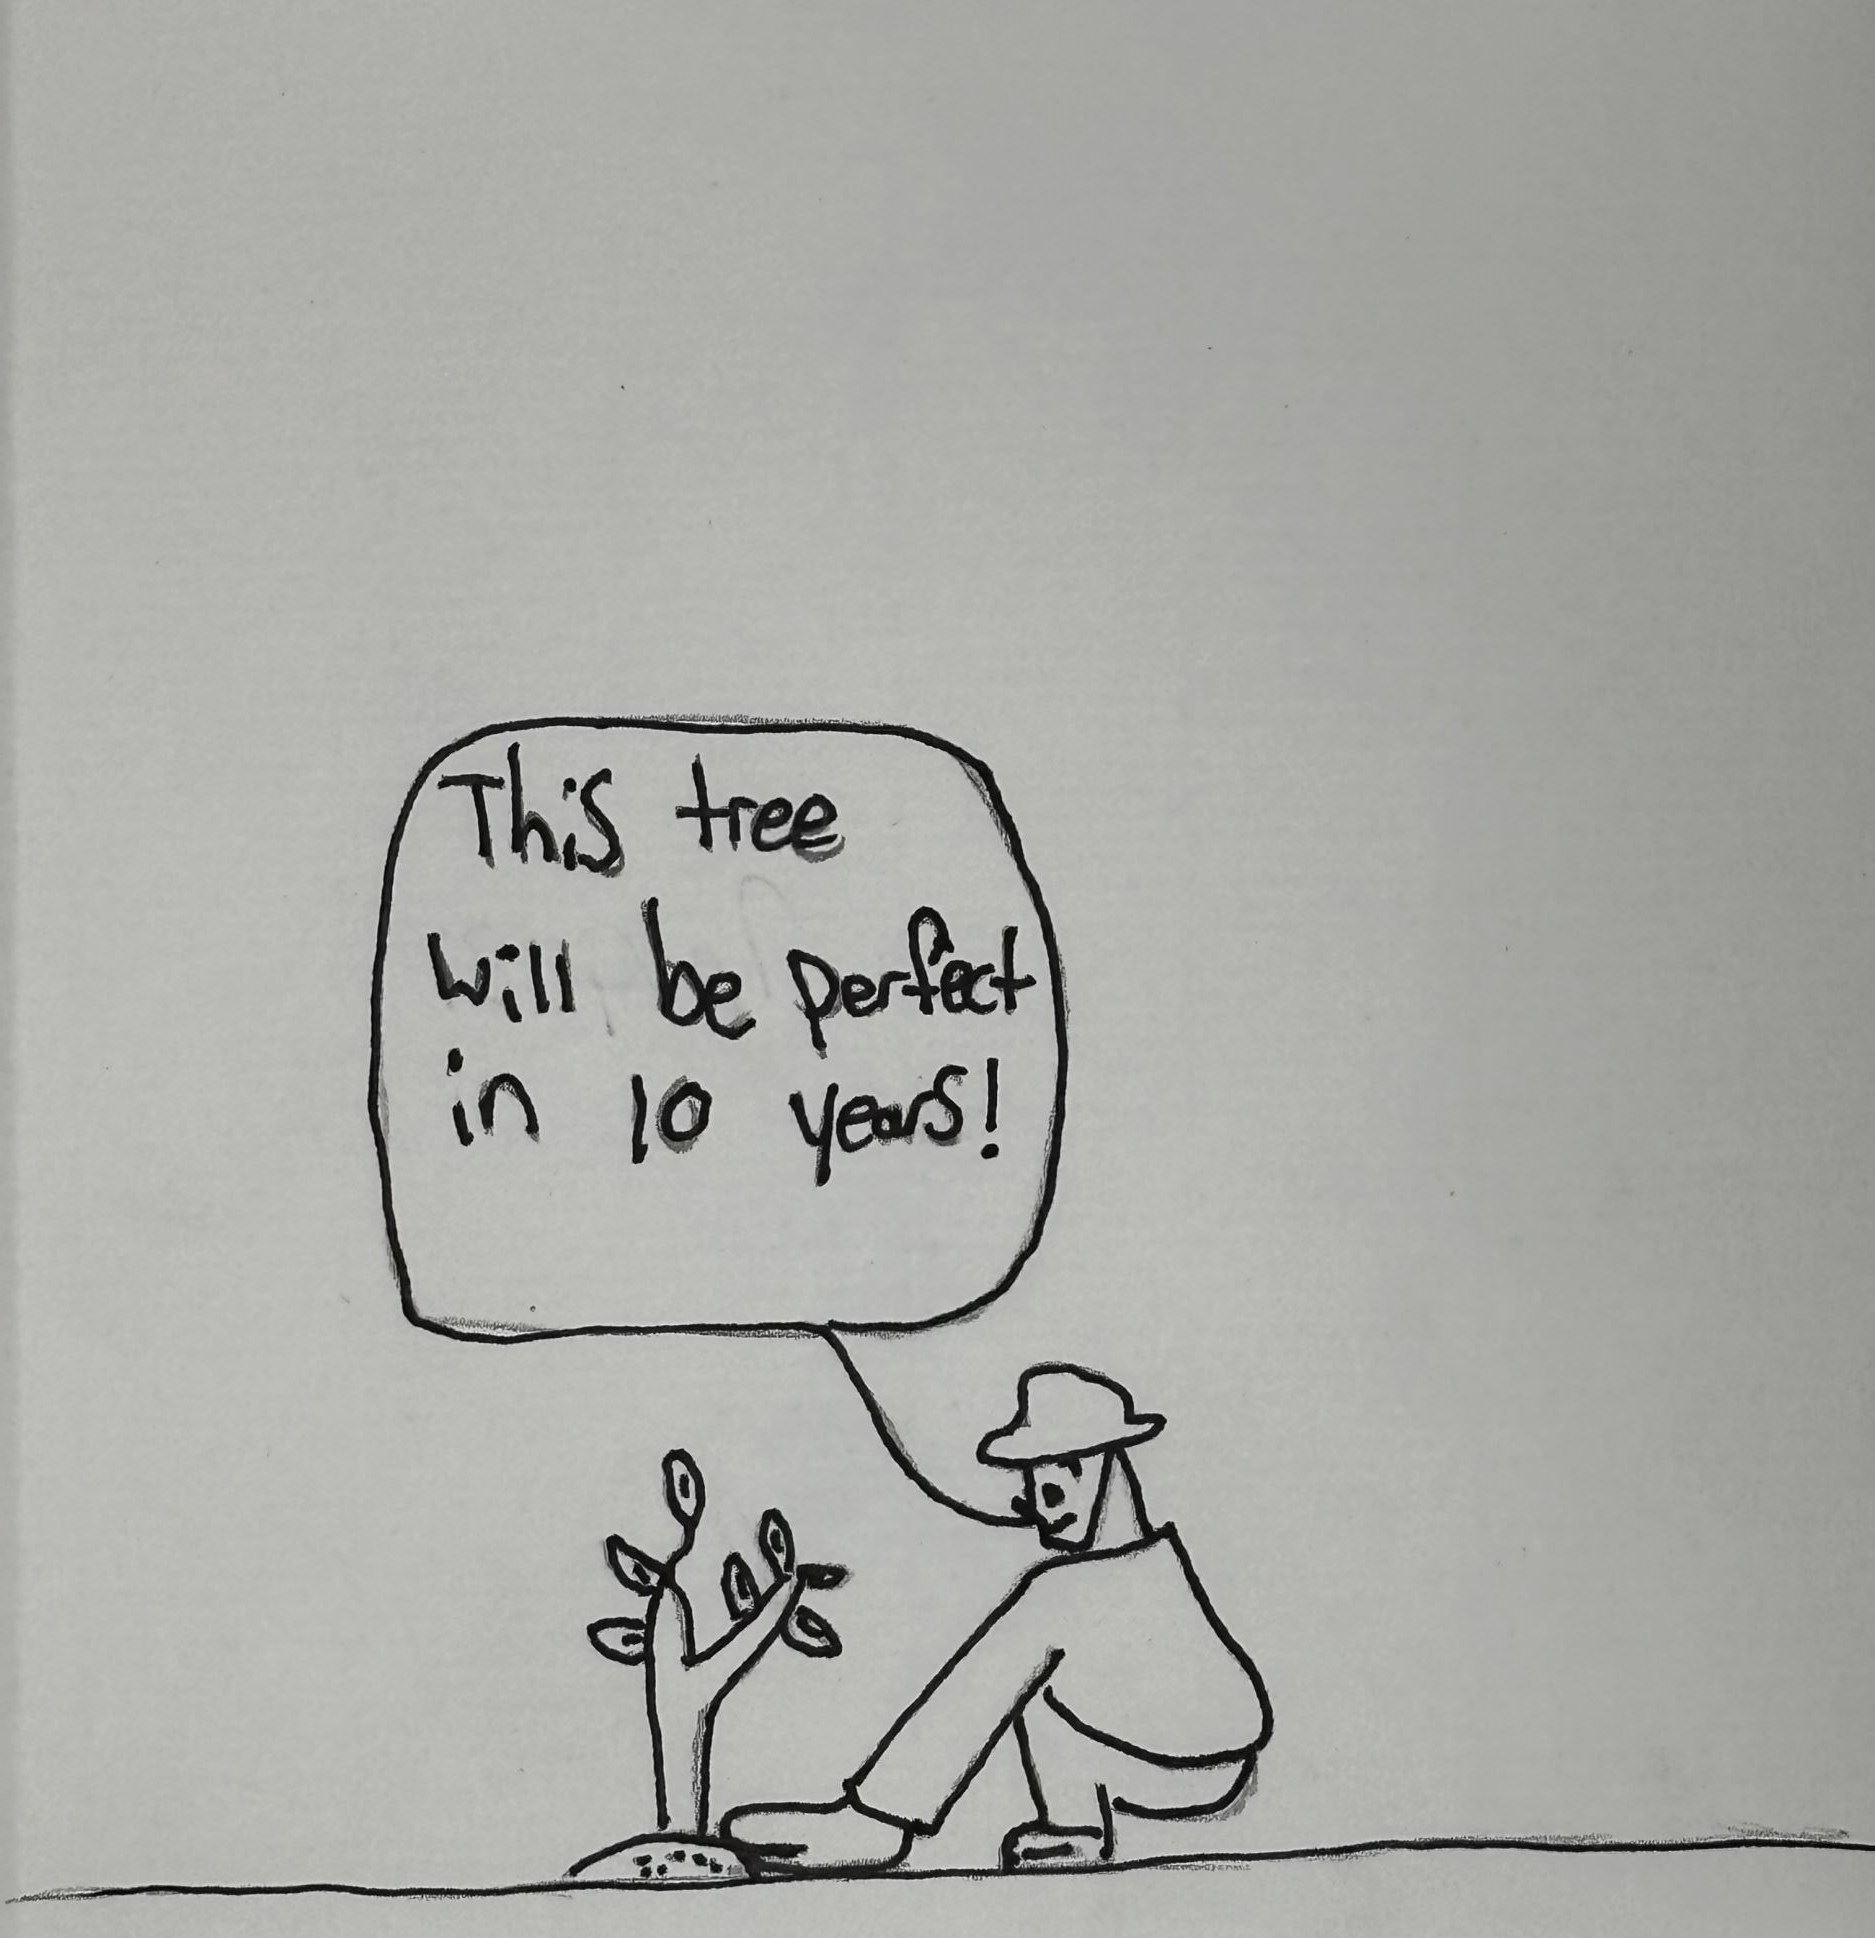 This tree
will be perfect
in 10 years!